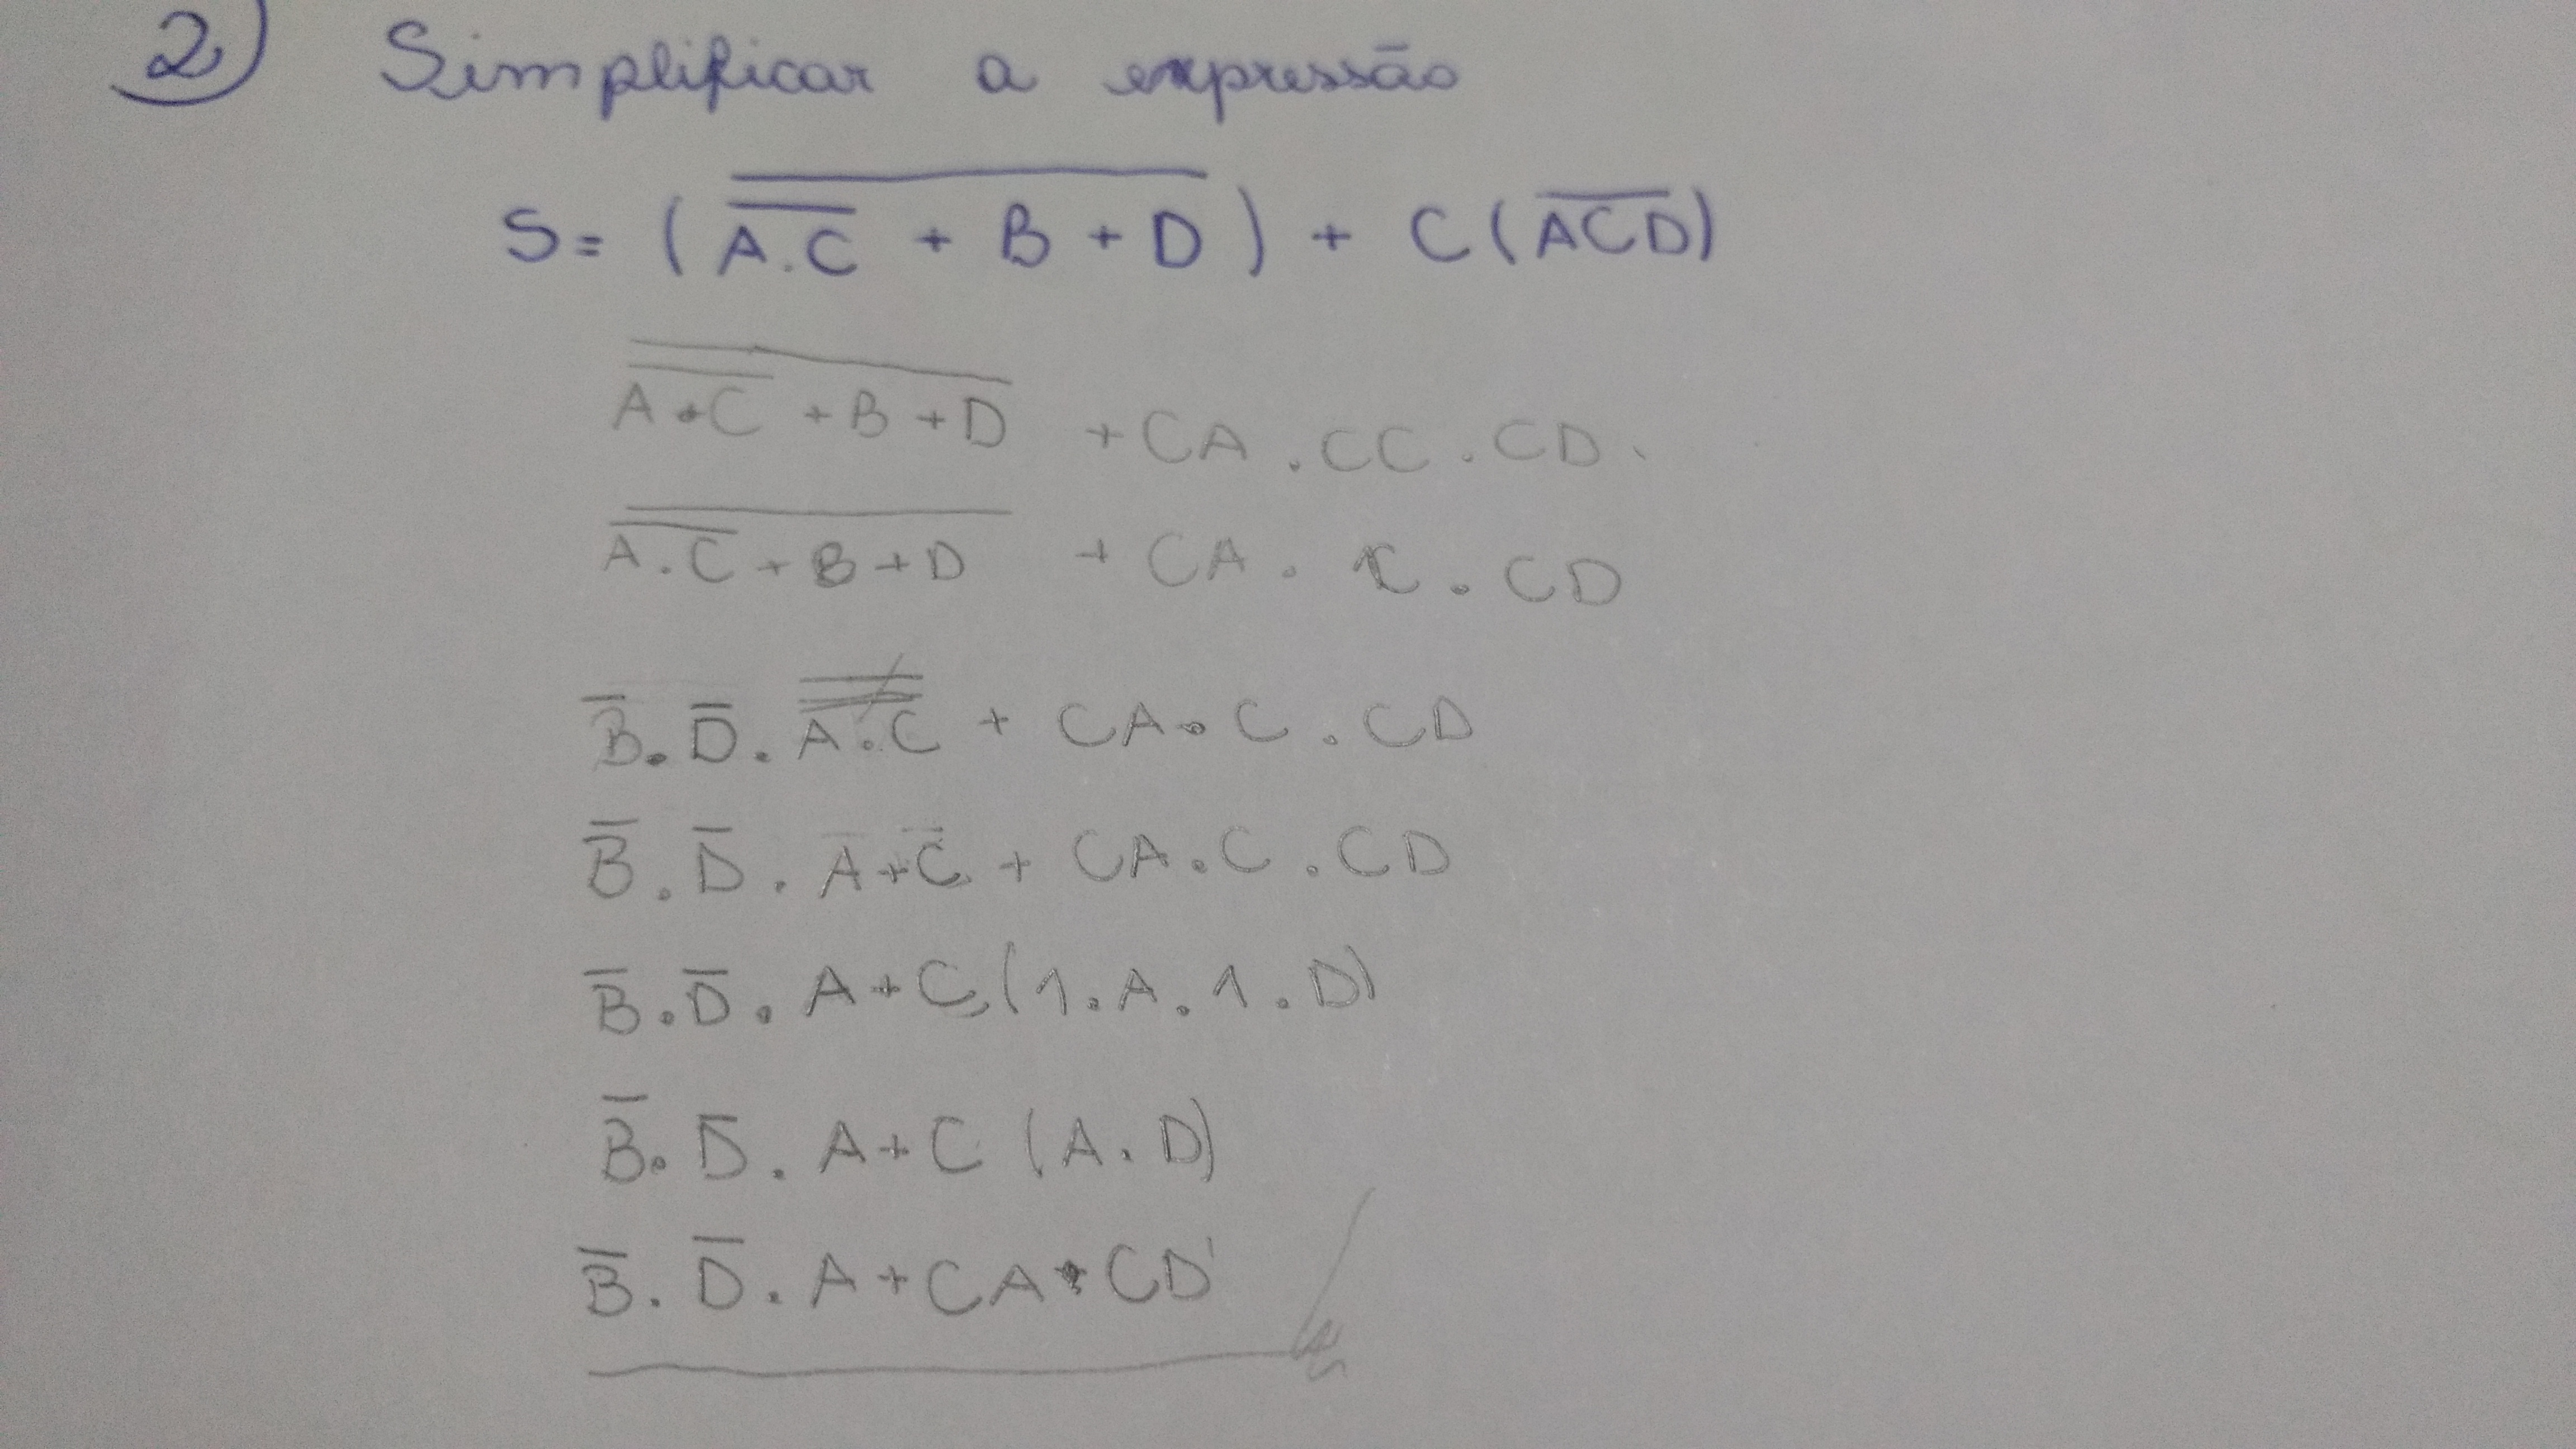 2) Simplificar a expressão
S = ( \overline{\overline{A.C} + B + D} ) + C ( \overline{ACD} )
\overline{\overline{A.C} + B + D} + CA . CC . CD .
\overline{\overline{A.C} + B + D} + CA . C . CD
\overline{B} . \overline{D} . \overline{\overline{A.C}} + CA . C . CD
\overline{B} . \overline{D} . \overline{A} + \overline{C} + CA . C . CD
\overline{B} . \overline{D} . A + C (1 . A . 1 . D)
\overline{B} . \overline{D} . A + C (A . D)
\overline{B} . \overline{D} . A + CA . CD